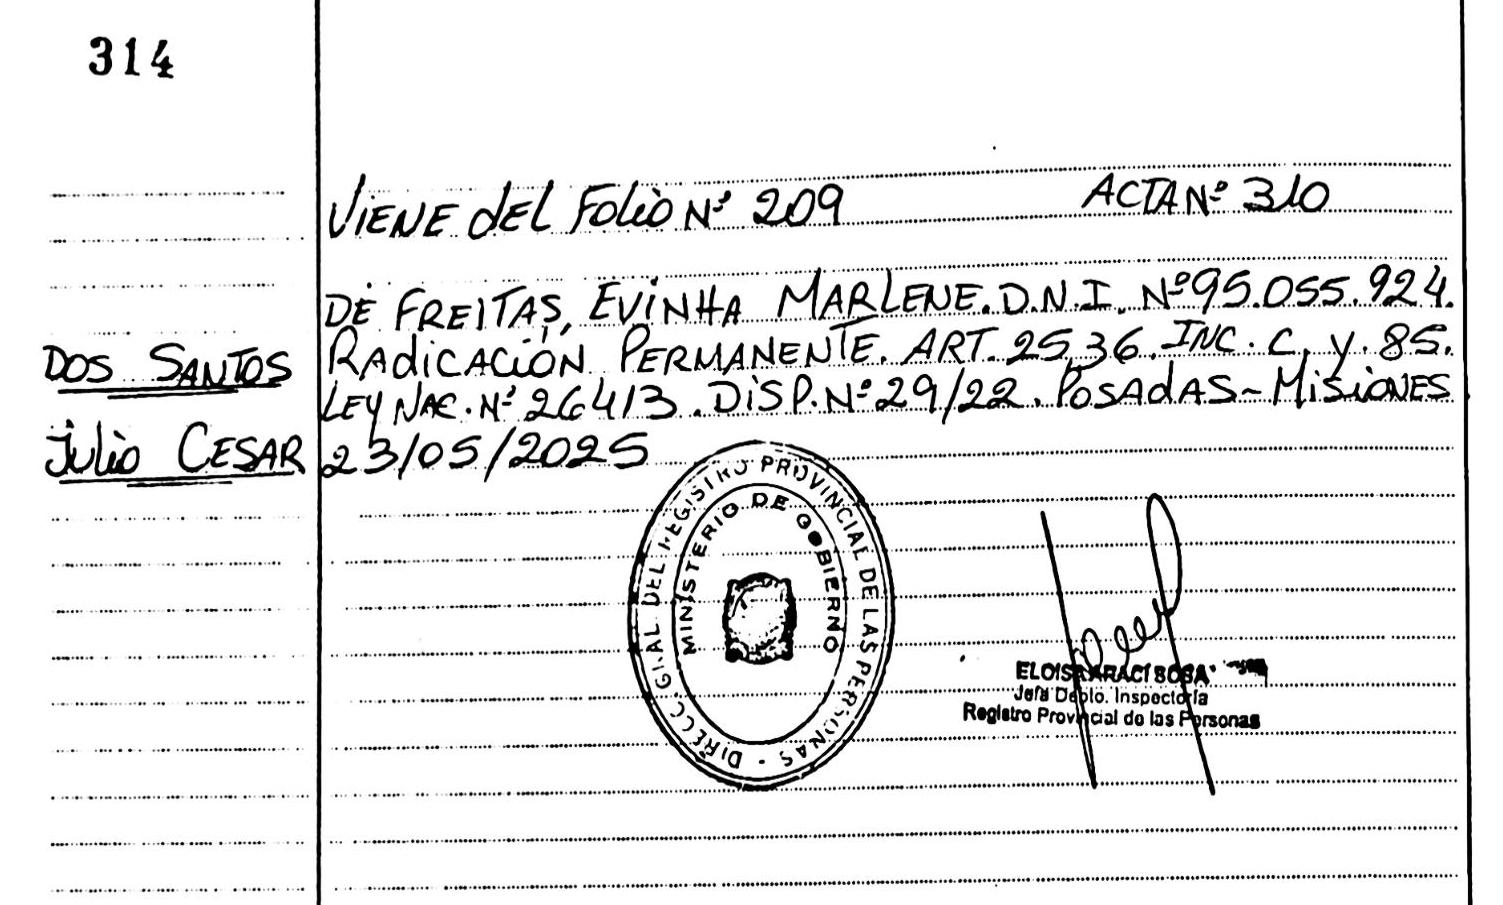 314
VIENE DEL FOLIO Nº 209 ACTA Nº 310
DE FREITAS, EVINHA MARLENE. D.N.I. Nº 95.055.924.
RADICACIÓN PERMANENTE. ART. 25,36. INC. C. Y. 85.
LEY NAC. Nº 26413. DISP. Nº 29/22. POSADAS - MISIONES
23/05/2025
DOS SANTOS
JULIO CESAR
DIRECC. GRAL DEL REGISTRO PROVINCIAL DE LAS PERSONAS
MINISTERIO DE GOBIERNO
ELOISA ARACI SOSA
Jefa Depto. Inspectoría
Registro Provincial de las Personas